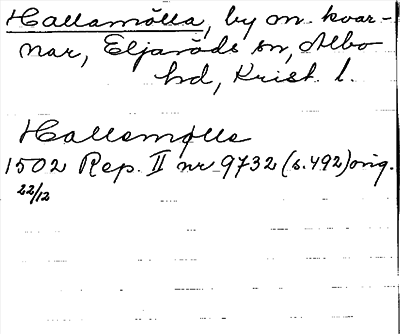 Hallamölla, by m. kvar-
nar, Eljaröds sn, Albo
hd, Krist. l.
Hallemølle
1502 Rep. II nr 9732 (s. 492) orig.
22/12